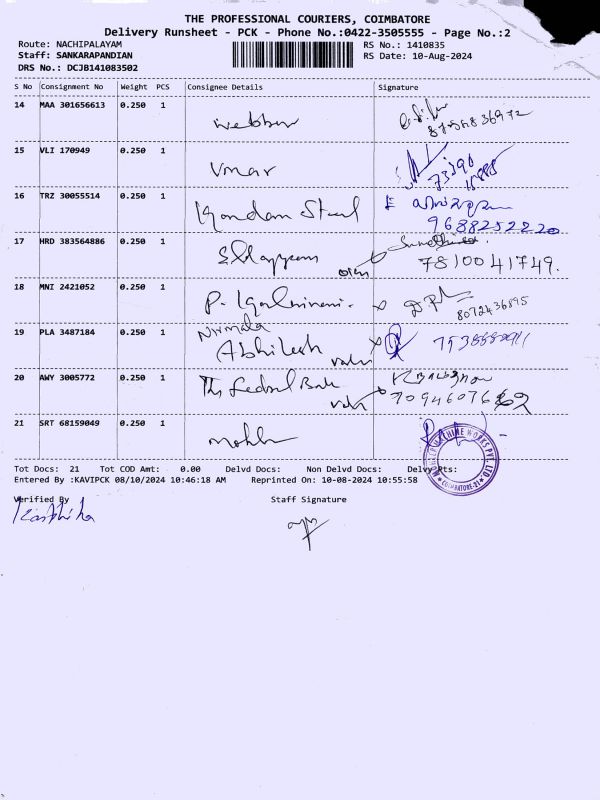 THE PROFESSIONAL COURIERS, COIMBATORE
Delivery Runsheet - PCK - Phone No.:0422-3505555 - Page No.:2
Route: NACHIPALAYAM RS No.: 1410835
Staff: SANKARAPANDIAN RS Date: 10-Aug-2024
DRS No.: DCJB141083502
S No Consignment No Weight PCS Consignee Details Signature
14 MAA 301656613 0.250 1
15 VLI 170949 0.250 1 Umar
16 TRZ 30055514 0.250 1
9688252220
17 HRD 383564886 0.250 1
7810041749.
18 MNI 2421052 0.250 1
8072436895
19 PLA 3487184 0.250 1 Nirmala
Abhilesh
20 AWY 3005772 0.250 1 The Federal Bank
21 SRT 68159049 0.250 1
Tot Docs: 21 Tot COD Amt: 0.00 Delvd Docs: Non Delvd Docs: Delvy Pts:
Entered By :KAVIPCK 08/10/2024 10:46:18 AM Reprinted On: 10-08-2024 10:55:58
Verified By Staff Signature
Karthika